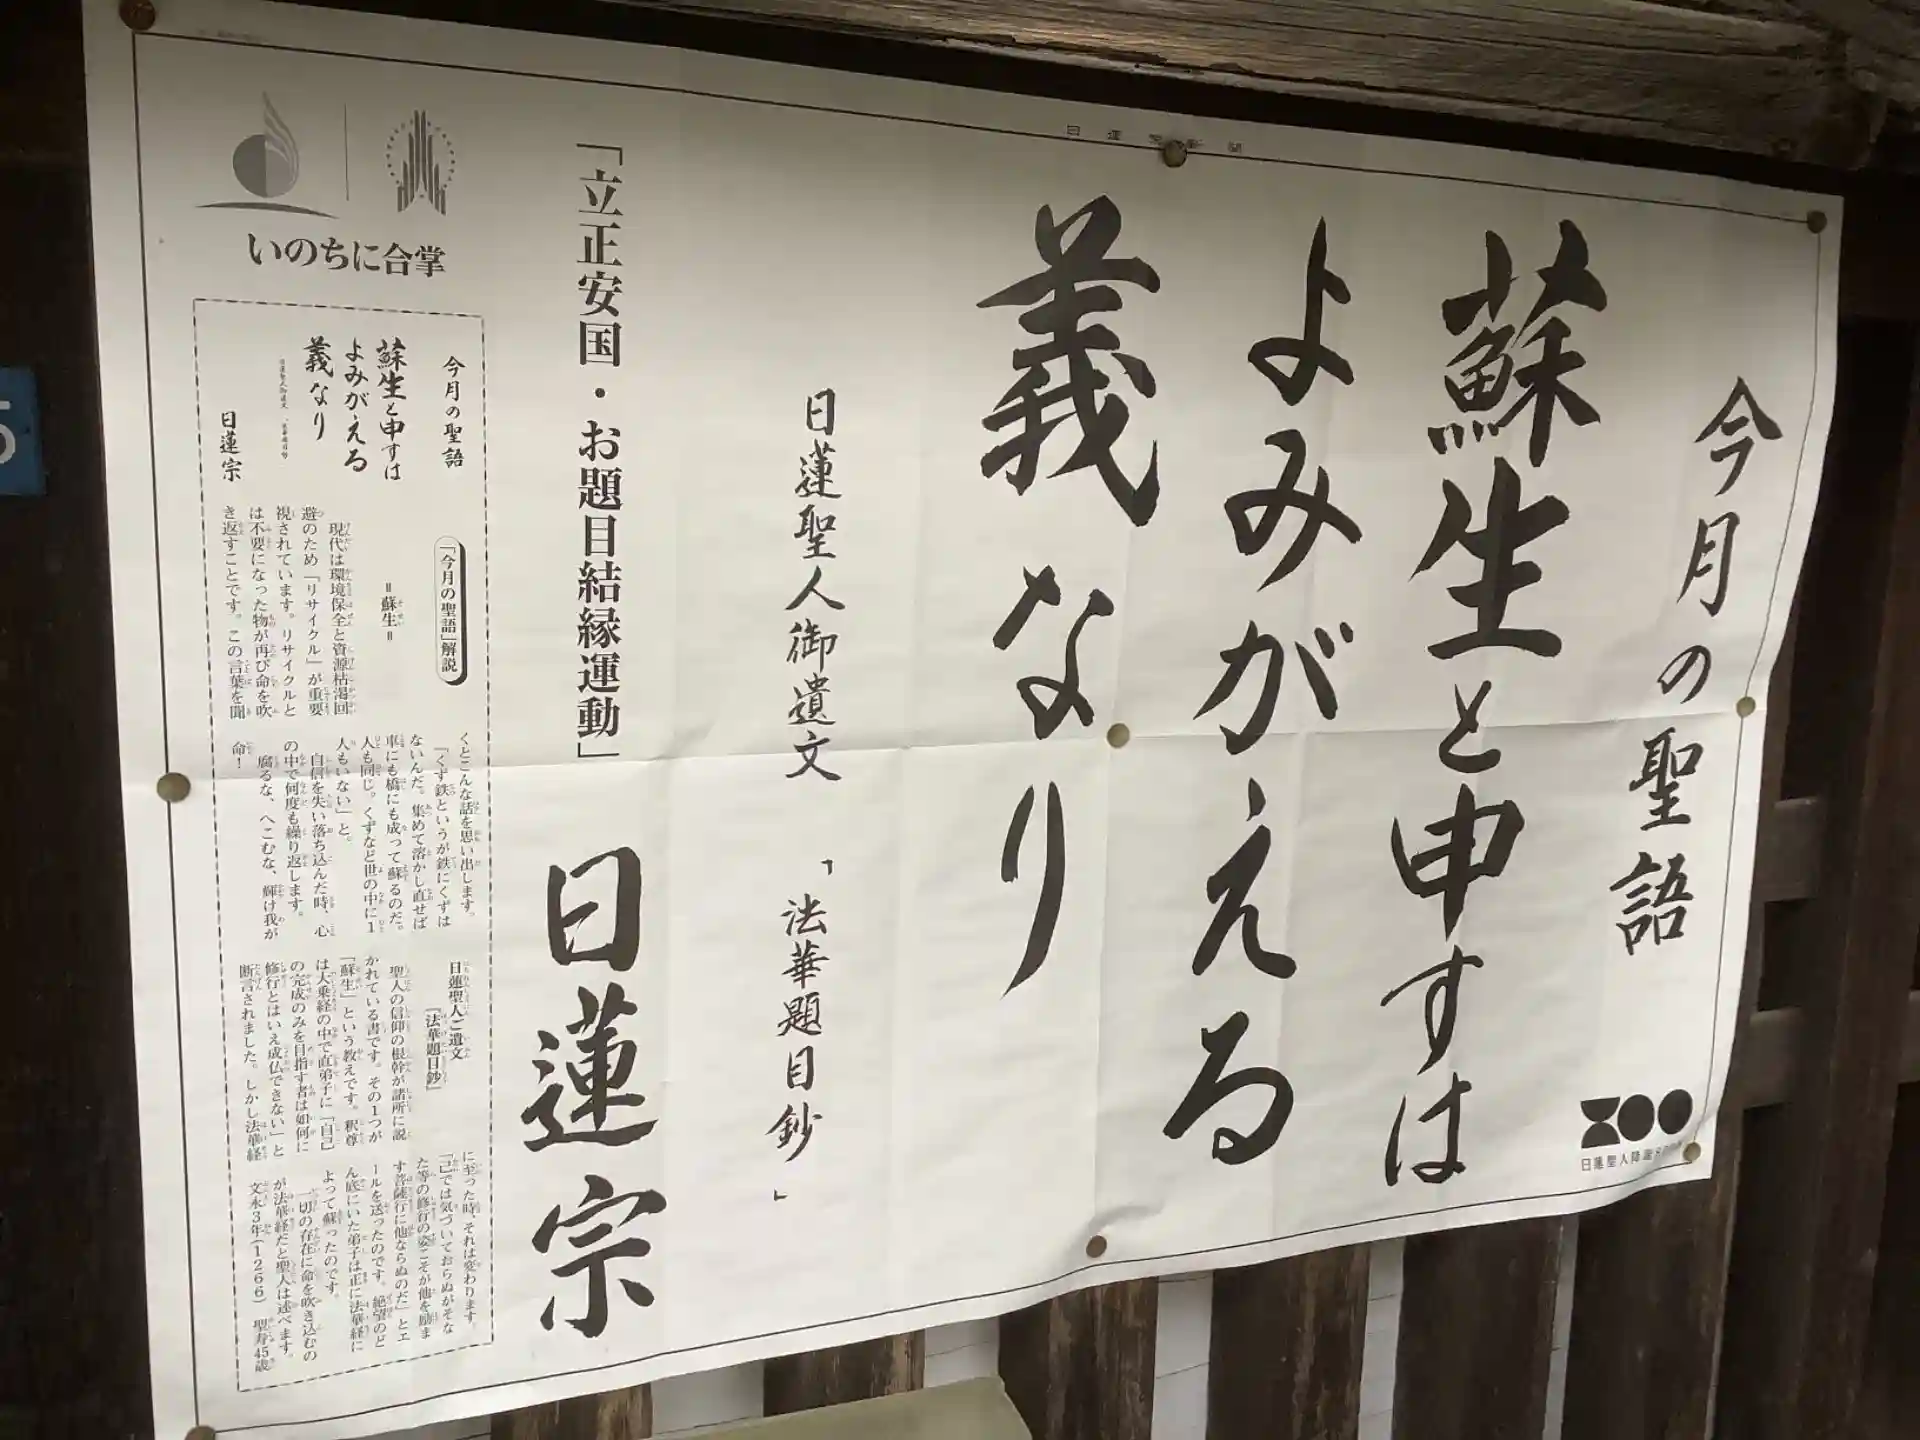 日蓮宗新聞
今月の聖語
蘇生と申すは
よみがえる
義なり
日蓮聖人御遺文 「法華題目鈔」
「立正安国・お題目結縁運動」
日蓮宗
いのちに合掌
今月の聖語
蘇生と申すは
よみがえる
義なり
日蓮聖人御遺文 「法華題目鈔」
日蓮宗
「今月の聖語」解説
=蘇生=
現代は環境保全と資源枯渇回
避のため「リサイクル」が重要
視されています。リサイクルと
は不要になった物が再び命を吹
き返すことです。この言葉を聞
くとこんな話を思い出します。
「くず鉄というが鉄にくずは
ないんだ。集めて溶かし直せば
車にも橋にも成って蘇るのだ。
人も同じ。くずなど世の中に1
人もいない」と。
自信を失い落ち込んだ時、心
の中で何度も繰り返します。
腐るな、へこむな、輝け我が
命!
日蓮聖人ご遺文
「法華題目鈔」
聖人の信仰の根幹が諸所に説
かれている書です。その1つが
「蘇生」という教えです。釈尊
は大乗経の中で直弟子に「自己
の完成のみを目指す者は如何に
修行とはいえ成仏できない」と
断言されました。しかし法華経
に至った時、それは変わります。
「己では気づいておらぬがそな
た等の修行の姿こそが他を励ま
す菩薩行に他ならぬのだ」とエ
ールを送ったのです。絶望のど
ん底にいた弟子は正に法華経に
よって蘇ったのです。
一切の存在に命を吹き込むの
が法華経だと聖人は述べます。
文永3年(1266) 聖寿45歳
日蓮聖人降誕
5